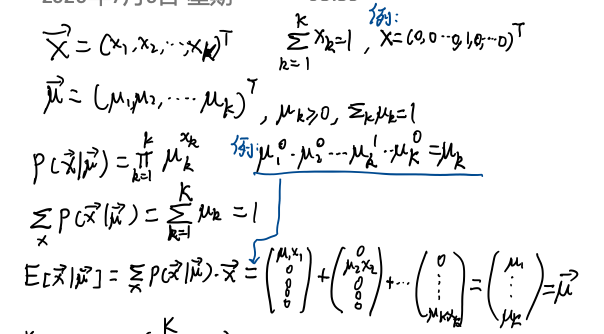 x⃗ = (x₁, x₂, ..., x_K)ᵀ  ∑_{k=1}^{K} x_k = 1 , 例: x = (0, 0 ... 0, 1, 0, ... 0)ᵀ
μ⃗ = (μ₁, μ₂, .... μ_k)ᵀ , μ_k ≥ 0, Σ_k μ_k = 1
p(x⃗|μ⃗) = ∏_{k=1}^{K} μ_k^{x_k}  例: μ₁⁰ · μ₂⁰ ... μ_k¹ .. μ_K⁰ = μ_k
∑_x p(x⃗|μ⃗) = ∑_{k=1}^{K} μ_k = 1
E[x⃗|μ⃗] = ∑_x p(x⃗|μ⃗) · x⃗ = (μ₁x₁ 0 0 0 0) + (0 μ₂x₂ 0 0 0) + ... (0 ⋮ μ_K x_K) = (μ₁ ⋮ μ_K) = μ⃗